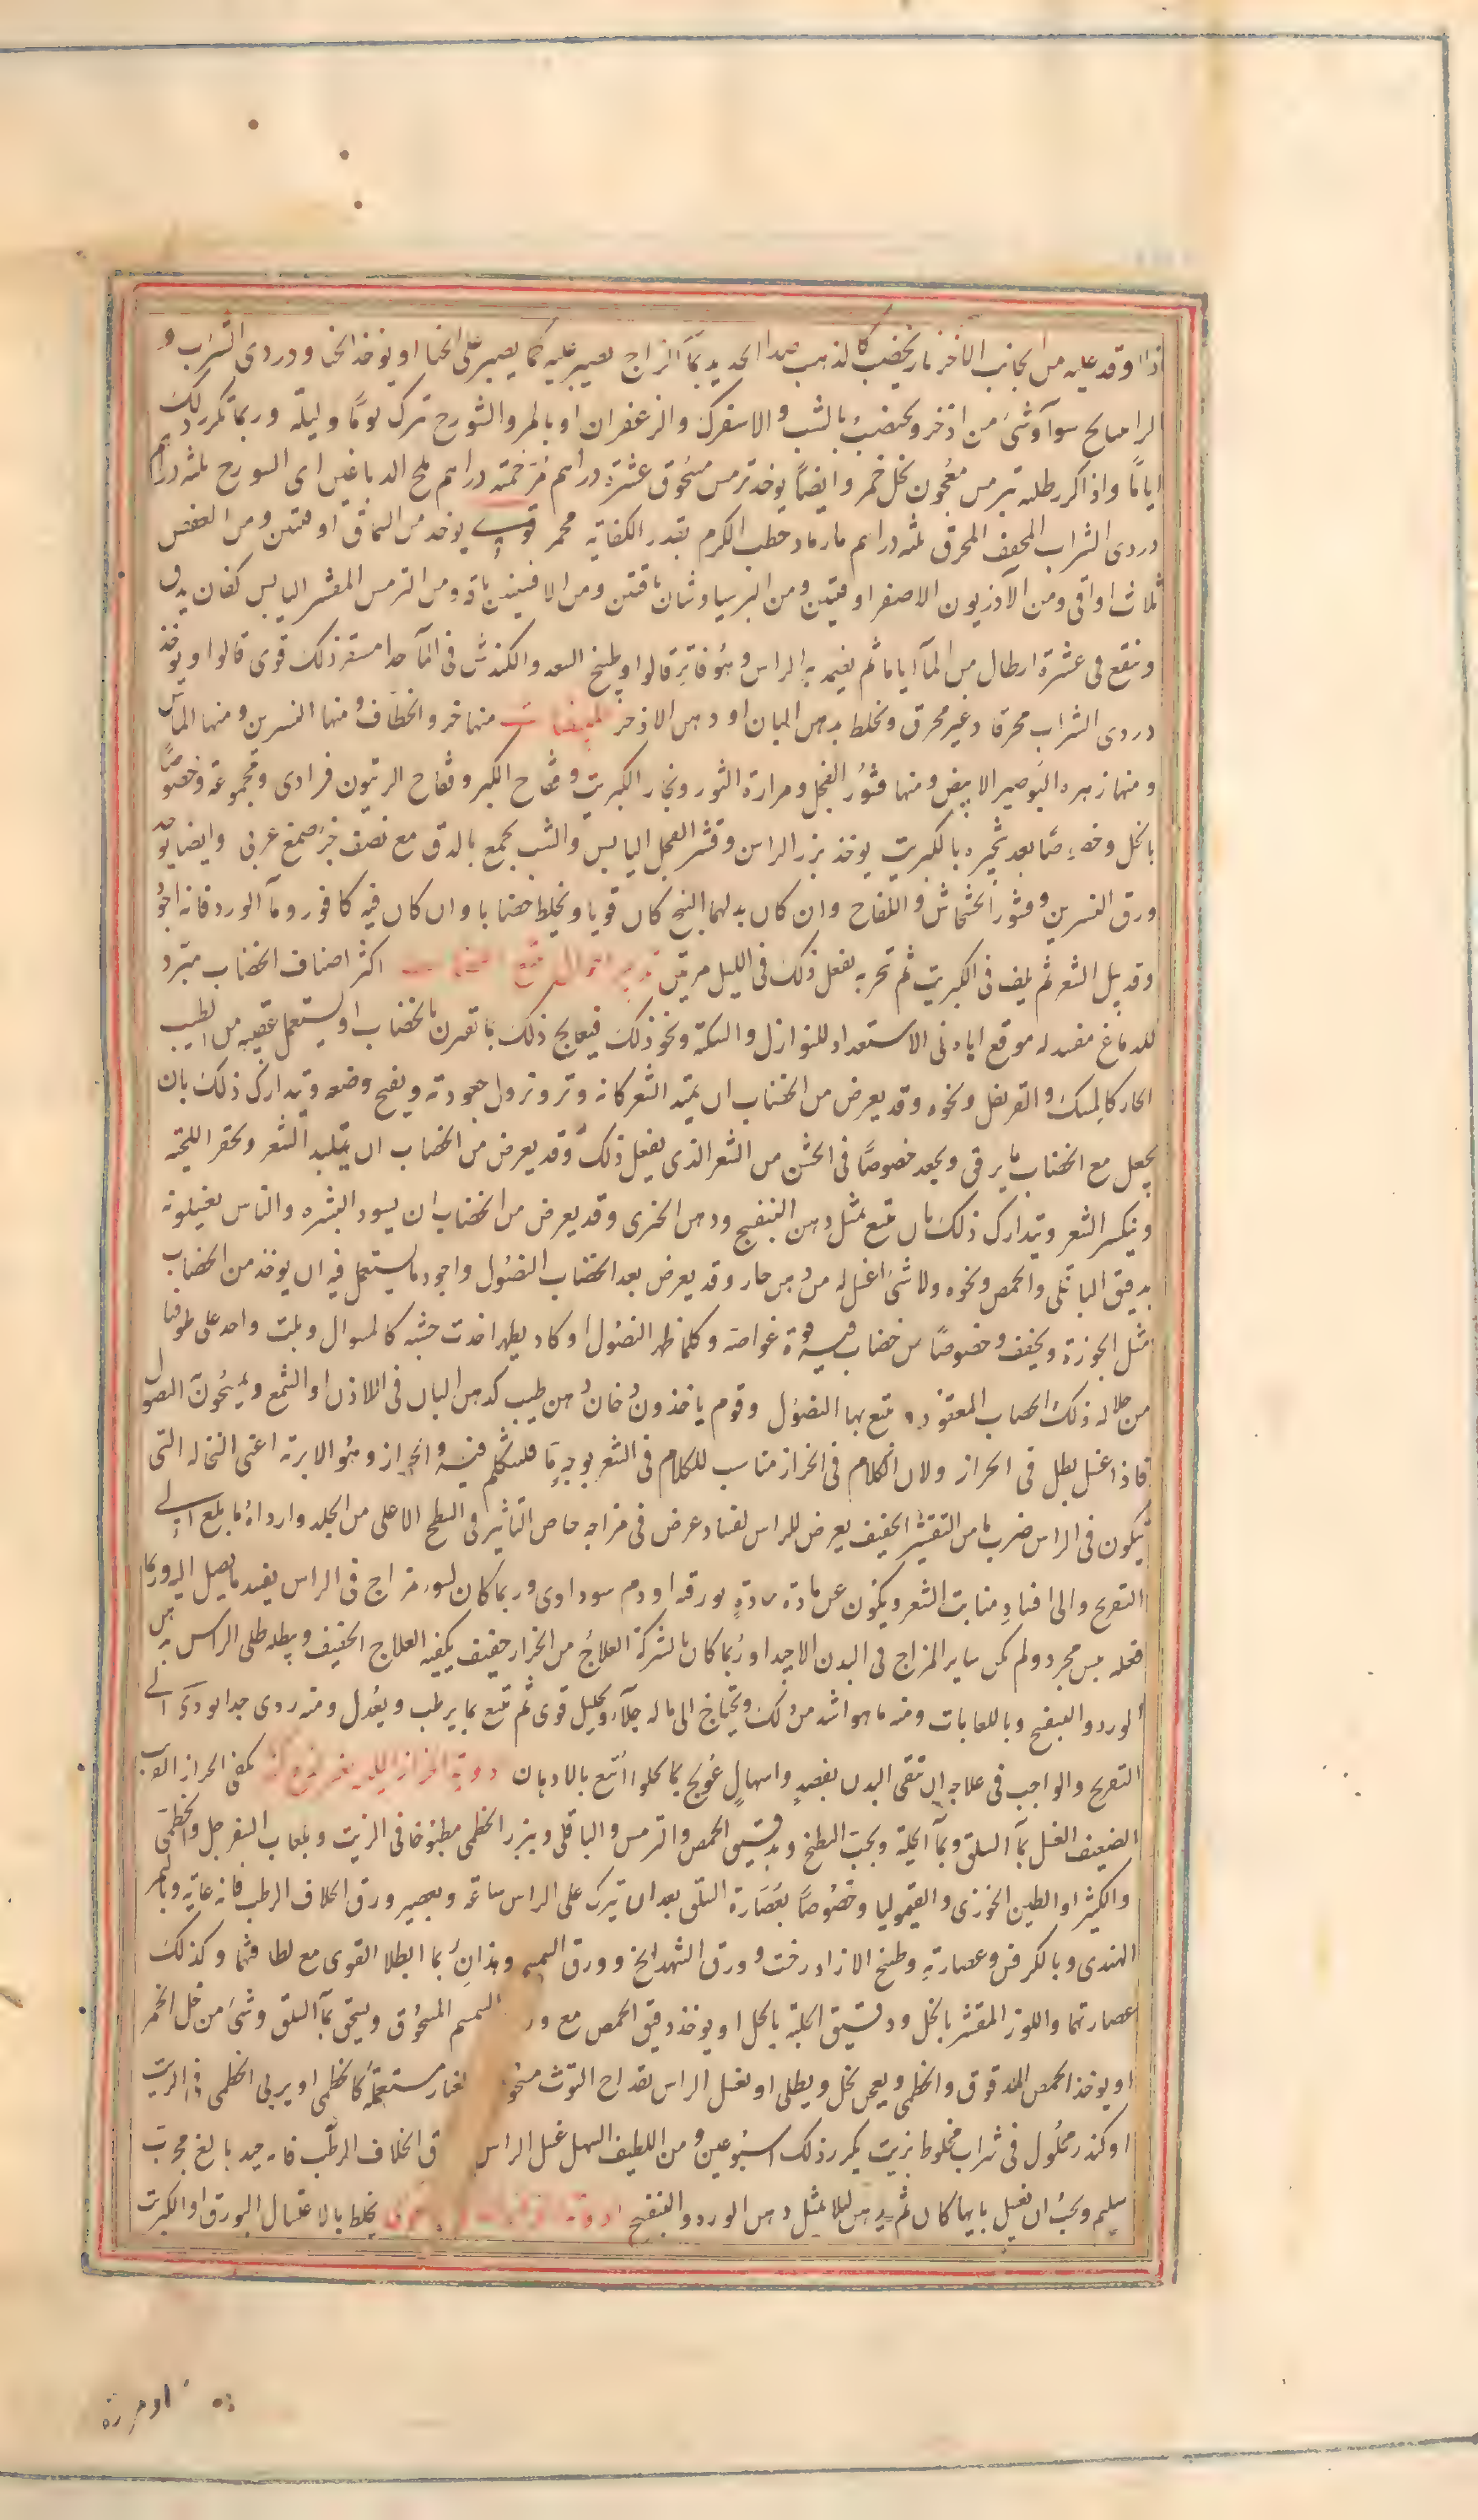 اذا اوقد عليه من الجانب الاخر نار يخضب كالذهب صدا الحديد بماء الزاج يصير عليه كما يصير على الحنا او يوخذ الحنا ودردى الشراب و
الراسايح سوآ وشئ من اذخر ويختضب بالشب والاسفرك والزعفران او بالمر والشورج يترك يومًا وليلة وربما تكرر ذلك
ايامًا واذا كرر طليه بترمس معجون بخل خمر وايضًا يوخذ ترمس مسحوق عشرة دراهم مر خمسة دراهم ملح الدباغين اى السورج ثلثه دراهم
دردى الشراب المجفف المحرق ثلثه دراهم ماء رماد حطب الكرم بقدر الكفاية محمر قوى يوخذ من السماق اوقيتين ومن العفص
ثلاث اواقى ومن الآذريون الاصفر اوقيتين ومن البرسياوشان باقتين ومن الافسنتين باقة ومن الترمس المقشر اليابس كفان يدق
وينقع فى عشرة ارطال من الماآ اياما ثم يغمر به الراس وهو فاتر قالوا وطبخ السعد والكندش فى المآ جدا مشقر ذلك قوى قالوا ويوخذ
دردى الشراب محرقا وغير محرق ويخلط بدهن البان او دهن الاذخر المبيضات منها خرو الخطاف ومنها النسرين ومنها الماش
ومنها زهره البوصير الابيض ومنها قشور الفجل ومرارة الثور وبخار الكبريت وفقاح الكبر وفقاح الزيتون فرادى ومجموعة وخصوصًا
بالخل وخصوصًا بعد تبخيره بالكبريت يوخذ بزر الراس وقشر الفجل اليابس والشب يجمع بالدق مع نصف جزء صمغ عربى وايضا يوخذ
ورق النسرين وقشور الخشخاش واللفاح وان كان بدلهما البنج كان قويا ويخلط خضابا وان كان فيه كافور ومآ الورد فانه اجود
وقد يبل الشعر ثم يلف فى الكبريت ثم تبخر به يفعل ذلك فى الليل مرتين تدبير احوال تتبع الخضاب اكثر اصناف الخضاب مبرد
للدماغ مفسد له موقع اياه فى الاستعداد للنوازل والسكتة ونحو ذلك فيعالج ذلك بما تقرن بالخضاب او يستعمل عقيبه من الطيب
الحار كالمسك والقرنفل ونحوه وقد يعرض من الخضاب ان يتمدد الشعر كانه وتر وتزول جعودته ويقبح وضعه ويتدارك ذلك بان
يجعل مع الخضاب ما يرقق ويجعد خصوصًا فى الخشن من الشعر الذى يفعل ذلك وقد يعرض من الخضاب ان يتلبد الشعر ويحقر اللحية
وينكسر الشعر ويتدارك ذلك بان تتبع بمثل دهن البنفسج ودهن الخيرى وقد يعرض من الخضاب ان يسود البشره والناس يغسلونه
بدقيق الباقلى والحمص ونحوه ولا شئ اغسل له من دهن حار وقد يعرض بعد الخضاب النصول واجود ما يستعمل فيه ان يوخذ من الخضاب
مثل الجوزة ويجفف وخصوصًا من خضاب فيه قوة غواصة وكلما ظهر النصول او كاد يظهر اخذت خشبه كالمسواك وبلت واحد على طرفها
من حلاله ذلك الخضاب المعقود وتتبع بها النصول وقوم ياخذون دخان دهن طيب كدهن البان فى اللاذن او الشمع ويمسحون النصول
فاذا غسل بطل فى الحزاز ولان الكلام فى الحزاز مناسب للكلام فى الشعر بوجه ما فلنتكلم فيه والحزاز وهو الابرته اعنى النخاله التى
تكون فى الراس ضرب ما من التقشر الخفيف يعرض للراس لفساد عرض فى مزاجه خاص التاثير فى السطح الاعلى من الجلد وارداه ما بلغ الى
التقرح والى افسادِ منابت الشعر ويكون عن مادة حادةٍ بورقيه او دم سوداوى وربما كان لسوء مزاج فى الراس يفسد ما يصل اليه وربما
فعله يبس مجرد ولم يكن ساير المزاج فى البدن الا جيدا وربما كان بالشركة العلاج من الحزاز خفيف يكفيه العلاج الخفيف ويبطله طلى الراس بدهن
الورد والبنفسج وباللعابات ومنه ما هو اشد من ذلك ويحتاج الى ما له جلآء وتحليل قوى ثم تتبع بما يرطب ويعدل ومنه ردى جدا يودى الى
التقرح والواجب فى علاجه ان ينقى البدن بفصدٍ واسهالٍ عُولج بما تحلوا اتبع بالادهان ادوية الحزاز يكفى الحزاز القريب
الضعيف الغسل بمآ السلق وبمآ الحلبة وبحب البطيخ وبدقيق الحمص والترمس والباقلى وببزر الخطمى مطبوخا فى الزيت وبلعاب السفرجل والخطمى
والكثيرا او الطين الخوزى والقيموليا وخصوصًا بعصارة السلق بعد ان يترك على الراس ساعة وبعصير ورق الخلاف الرطب فانه غاية وبالتمر
الهندى وبالكرفس وعصارته وطبخ الازادرخت وورق الشهدانج وورق السمسم وهذان ربما ابطلا القوى مع لطافتهما وكذلك
عصارتهما واللوز المقشر بالخل ودقيق الحلبة بالخل او يوخذ دقيق الحمص مع ور السمسم المسحوق ويسحق بمآ السلق وشئ من خل الخمر
او يوخذ الحمص المدقوق والخطمى ويعجن بخل ويطلى او يغسل الراس بقداح التوت مسحو لغبار مستعمله كالخطمى او يربى الخطمى فى الزيت
او كندر محلول فى شراب مخلوط بزيت يكرر ذلك اسبوعين ومن اللطيف السهل غسل الراس ق الخلاف الرطب فانه جيد بالغ مجرب
سليم ويجب ان يغسل بايها كان ثم يدهن ليلا بمثل دهن الورد والبنفسج يخلط بالاغتسال البورق او الكبريت
او مرة